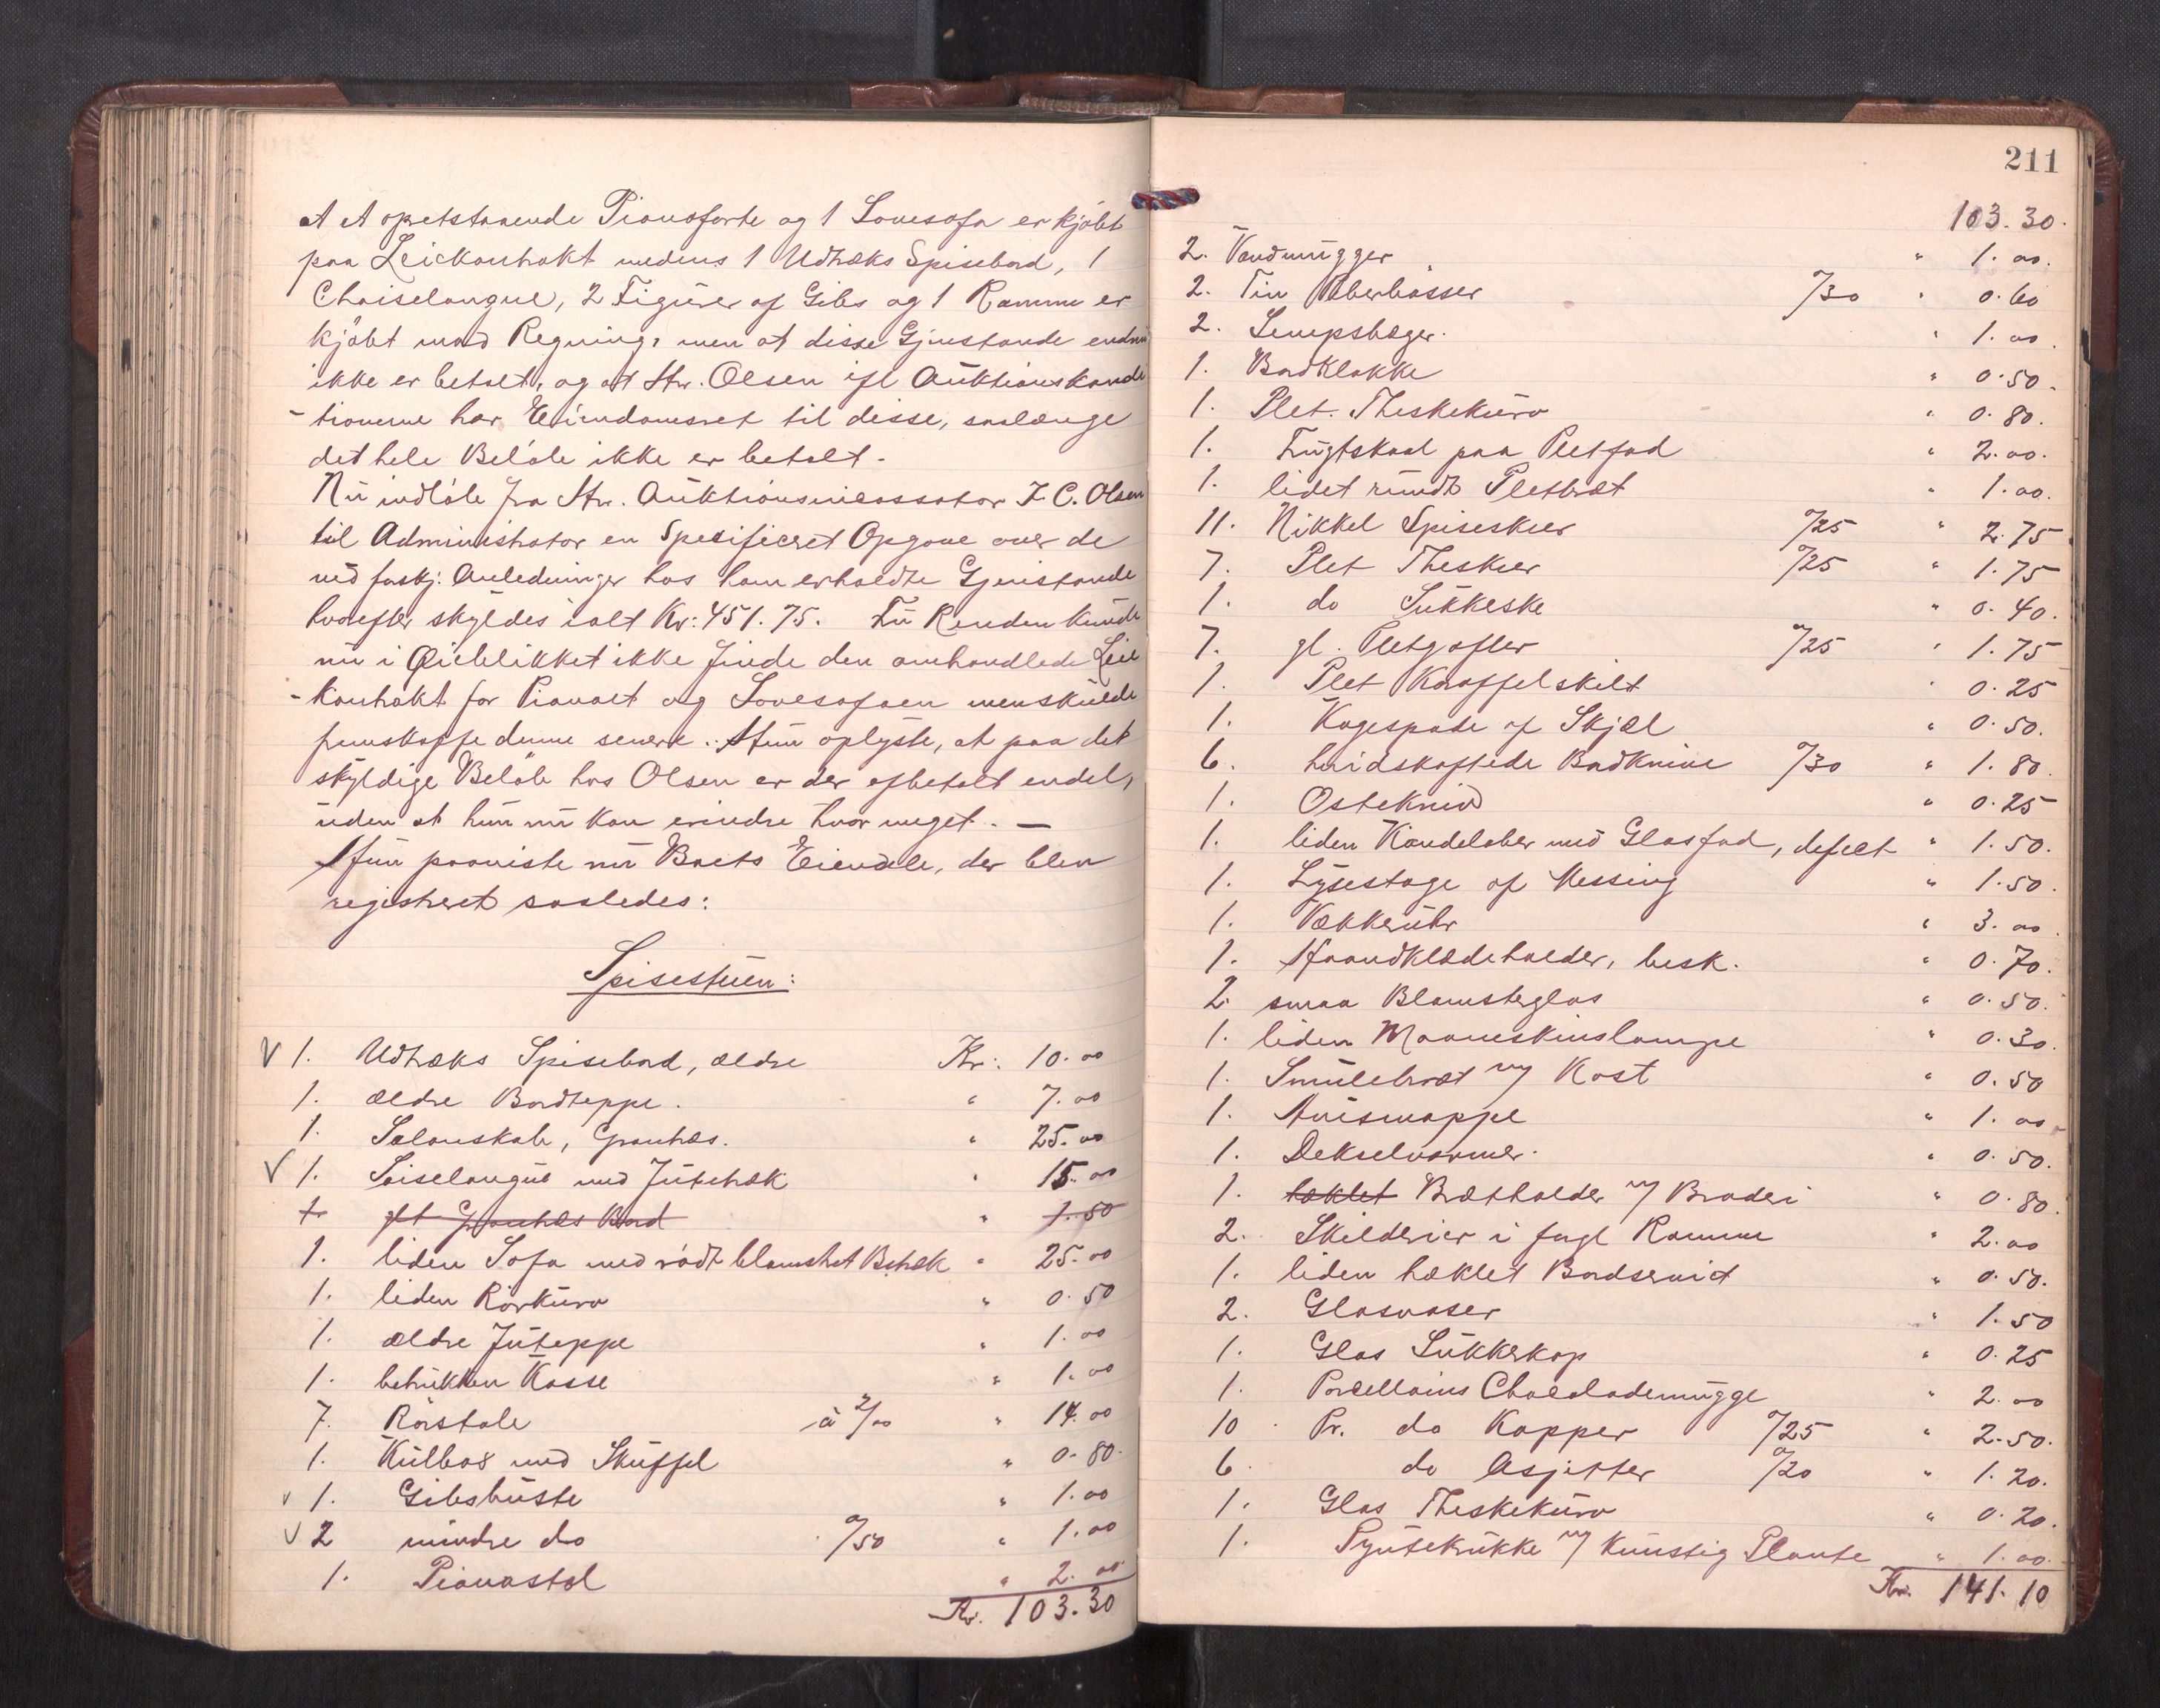 At et opretstaaende Pianoforte og 1 Sovesofa er kjøbt
paa Leiekontrakt medens 1 Udtræks Spisebord, 1
Chaiselongue, 2 Figurer af Gibs og 1 Ramme er
kjøbt mod Regning, men at disse Gjenstande endnu
ikke er betalt, og at Hr. Olsen ifl Auktionskondi
-tionerne har Eiendomsret til disse, saalænge
det hele Beløb ikke er betalt.
Nu indløb fra Hr. Auktionsincassator F. C. Olsen
til Administrator en Spesificeret Opgave over de
ved forskj. Anledninger hos ham erholdte Gjenstande
hvorefter skyldes ialt Kr: 451.75. Fru Renden kunde
nu i Øieblikket ikke finde den omhandlede Leie
-kontrakt for Pianoet og Sovesofaen men skulde
fremskaffe denne senere. Hun oplyste, at paa det
skyldige Beløb hos Olsen er der afbetalt endel,
uden at hun nu kan erindre hvor meget. —
Hun paaviste nu Boets Eiendele, der blev
registreret saaledes:
Spisestuen:
V 1. Udtræks Spisebord, ældre Kr: 10.00
1. ældre Bordteppe. " 7.00
1. Salonskab, Grantræs. " 25.00
V 1. Saiselongue med Jutetræk " 15.00
1. gl Grantræs Bord " 1.50
1. liden Sofa med rødt blomstret Betræk " 25.00
1. liden Rørkurv " 0.50
1. ældre Juteppe " 1.00
1. betrukken Kasse " 1.00
7. Rørstole à 2/00 " 14.00
1. Kulbox med Skuffel " 0.80.
v 1. Gibsbuste " 1.00
v 2 mindre do a/50 " 1.00
1. Pianostol " 2.00
Kr. 103.30
211
103.30.
2. Vandmugger " 1.00.
2. Tin Peberbøsser a/30 " 0.60
2. Sempsbæger. " 1.00.
1. Bordklokke " 0.50.
1. Plet. Theskekurv " 0.80.
1. Frugtskaal paa Pletfad " 2.00.
1. lidet rundt Pletbræt " 1.00.
11. Nikkel Spiseskeer a/25 " 2.75
7. Plet Theskeer a/25 " 1.75
1. do Sukkeske " 0.40.
7. gl. Pletgafler a/25 " 1.75
1. Plet Karaffelskilt " 0.25
1. Kagespade af Skjæl " 0.50.
6. hvidskaftede Bordknive a/30 " 1.80.
1. Ostekniv " 0.25
1. liden Kandelaber med Glasfad, defect " 1.50.
1. Lysestage af Messing " 1.50.
1. Vækkeruhr " 3.00.
1. Haandklædeholder, besk. " 0.70.
2. smaa Blomsterglas " 0.50.
1. liden Maaneskinslampe " 0.30.
1. Smulebræt m/ Kost " 0.50
1. Avismappe " 1.00
1. Dekselvarmer. " 0.50.
1. hæklet Brætholder m/ Broderi " 0.80.
2. Skilderier i forgl Ramme " 2.00
1. liden hæklet Bordserviet " 0.50.
2. Glasvaser " 1.50
1. Glas Sukkerkop " 0.25
1. Porcellains Chocolademugge " 2.00
10 Pr. do Kopper a/25 " 2.50.
6. do Asjetter a/20 " 1.20.
1. Glas Theskekurv " 0.20.
1. Pyntekrukke m/ Kunstig Plante " 1.00.
Kr. 141.10